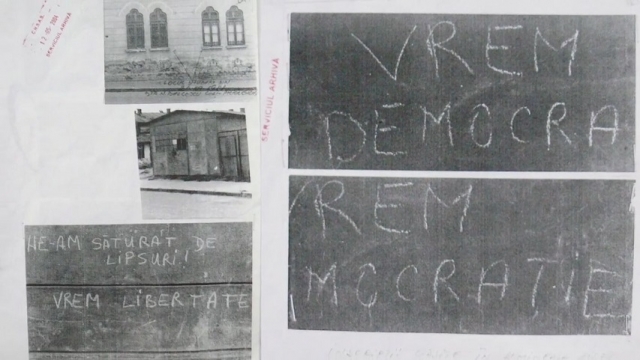 SERVICIUL ARHIVĂ
NE-AM SĂTURAT DE
LIPSURI!
VREM LIBERTATE
SERVICIUL ARHIVĂ
VREM
DEMOCRA
VREM
MOCRAȚIE